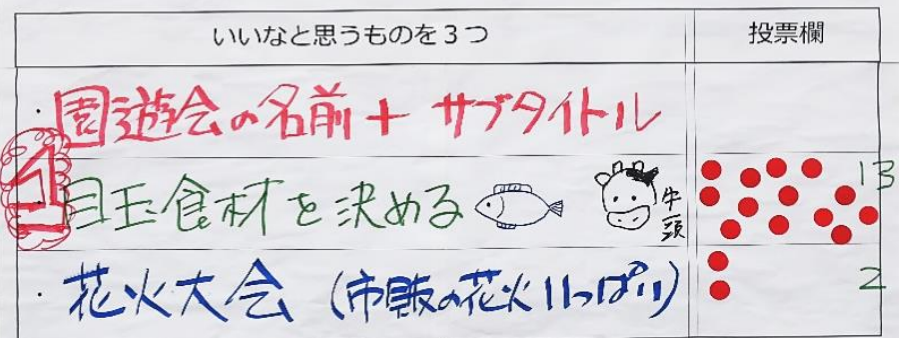 いいなと思うものを３つ 投票欄
・園遊会の名前＋ サブタイトル
1
・目玉食材を決める 牛一頭 13
・花火大会 (市販の花火いっぱい) 2